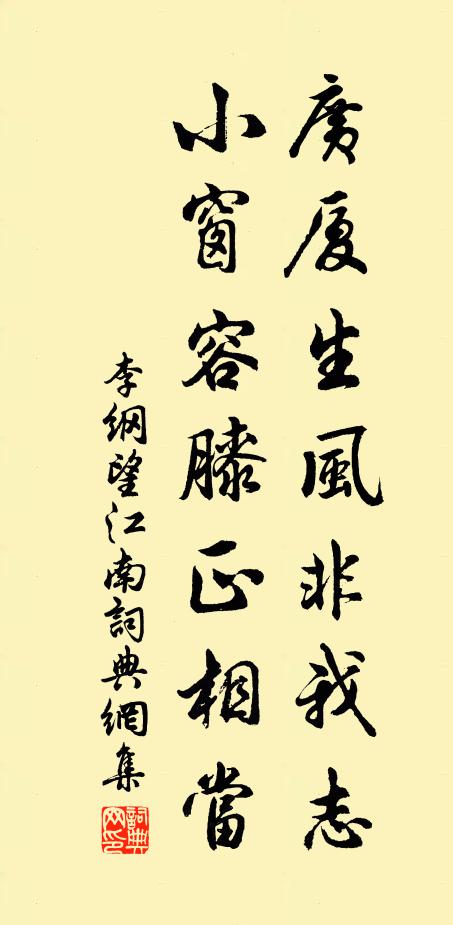 廣厦生風非我志
小窗容膝正相當
李綱望江南詞典網集
詞典網印